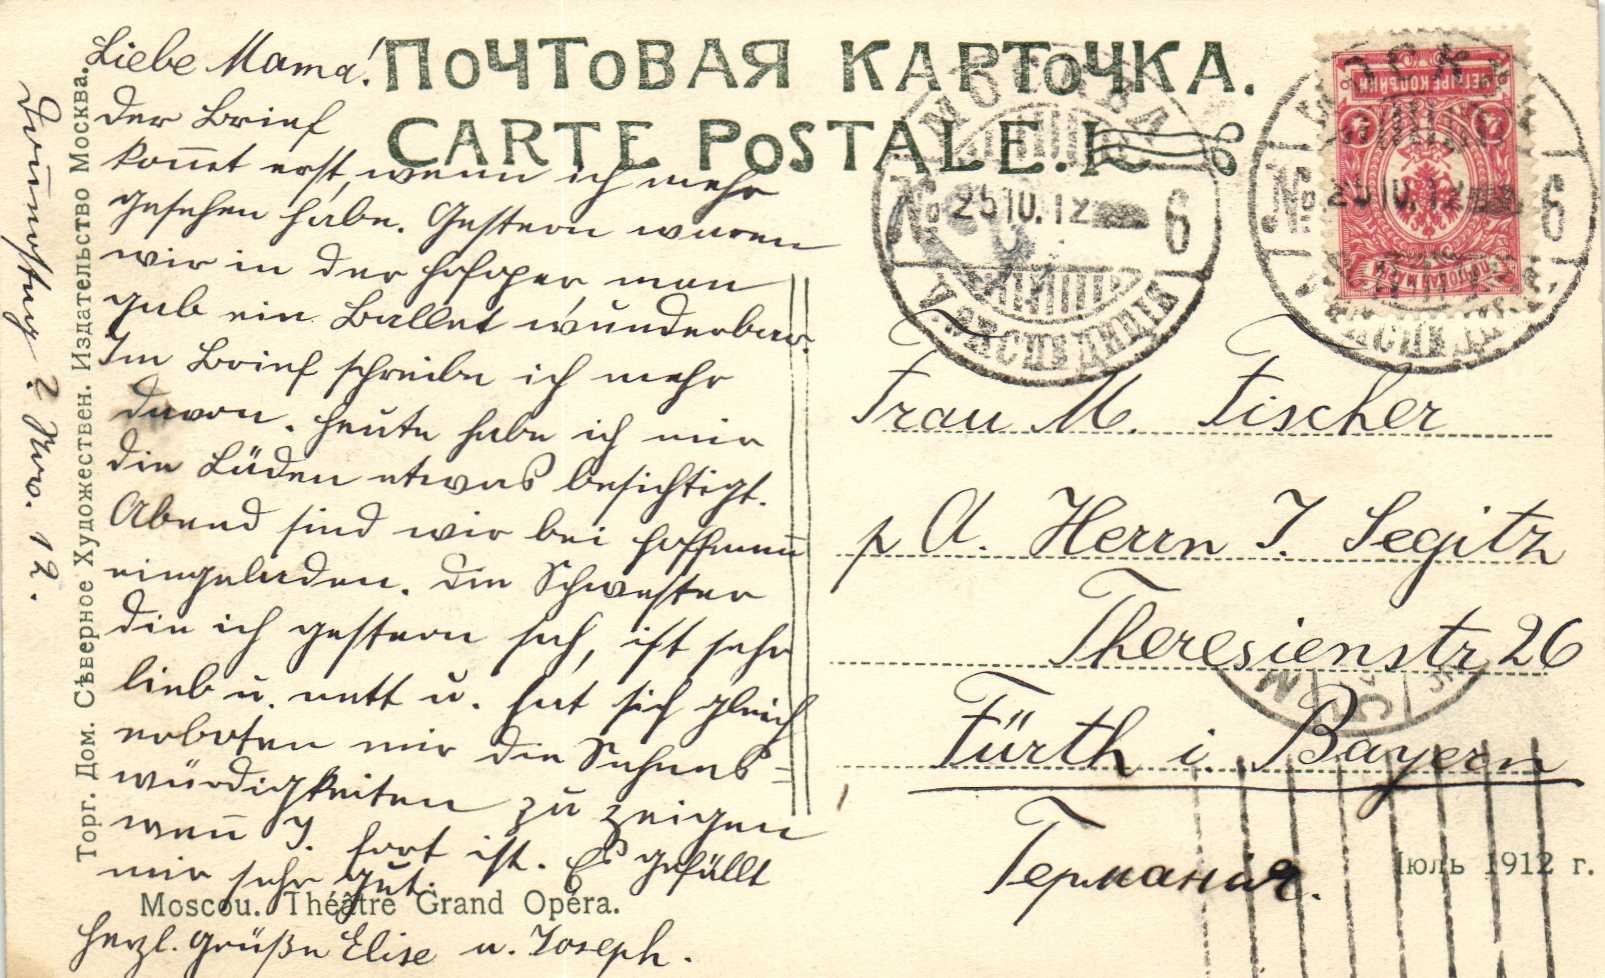 ПОЧТОВАЯ КАРТОЧКА.
CARTE POSTALE.
Liebe Mama!
der Brief
kom̄t erst, wenn ich mehr
gesehen habe. Gestern waren
wir in der Hofoper, man
gab ein Ballet wunderbar.
Im Brief schreibe ich mehr
davon. Heute habe ich mir
die Läden etwas besichtigt.
Abend sind wir bei Hoffman̄
eingeladen. Die Schwester
die ich gestern sah, ist sehr
lieb u. nett u. hat sich gleich
erboten mir die Sehens=
würdigkeiten zu zeigen
wen̄ J. fort ist. Es gefällt
mir sehr gut.
Herzl. Grüße Elise u. Joseph.
Don̄erstag 7. Nov. 12.
Торг. Дом. Сѣверное Художествен. Издательство Москва.
Moscou. Théâtre Grand Opéra.
МОСКВА
№ 25 10.12 6
V. ЭКСПЕДИЦІЯ
МОСКВА
№ 25 10.12 6
ЭКСПЕДИЦІЯ
ЧЕТЫРЕ КОПѢЙКИ
4 4
Frau M. Fischer
p A. Herrn J. Segitz
Theresienstr 26
Fürth i. Bayern
Германия.
Іюль 1912 г.